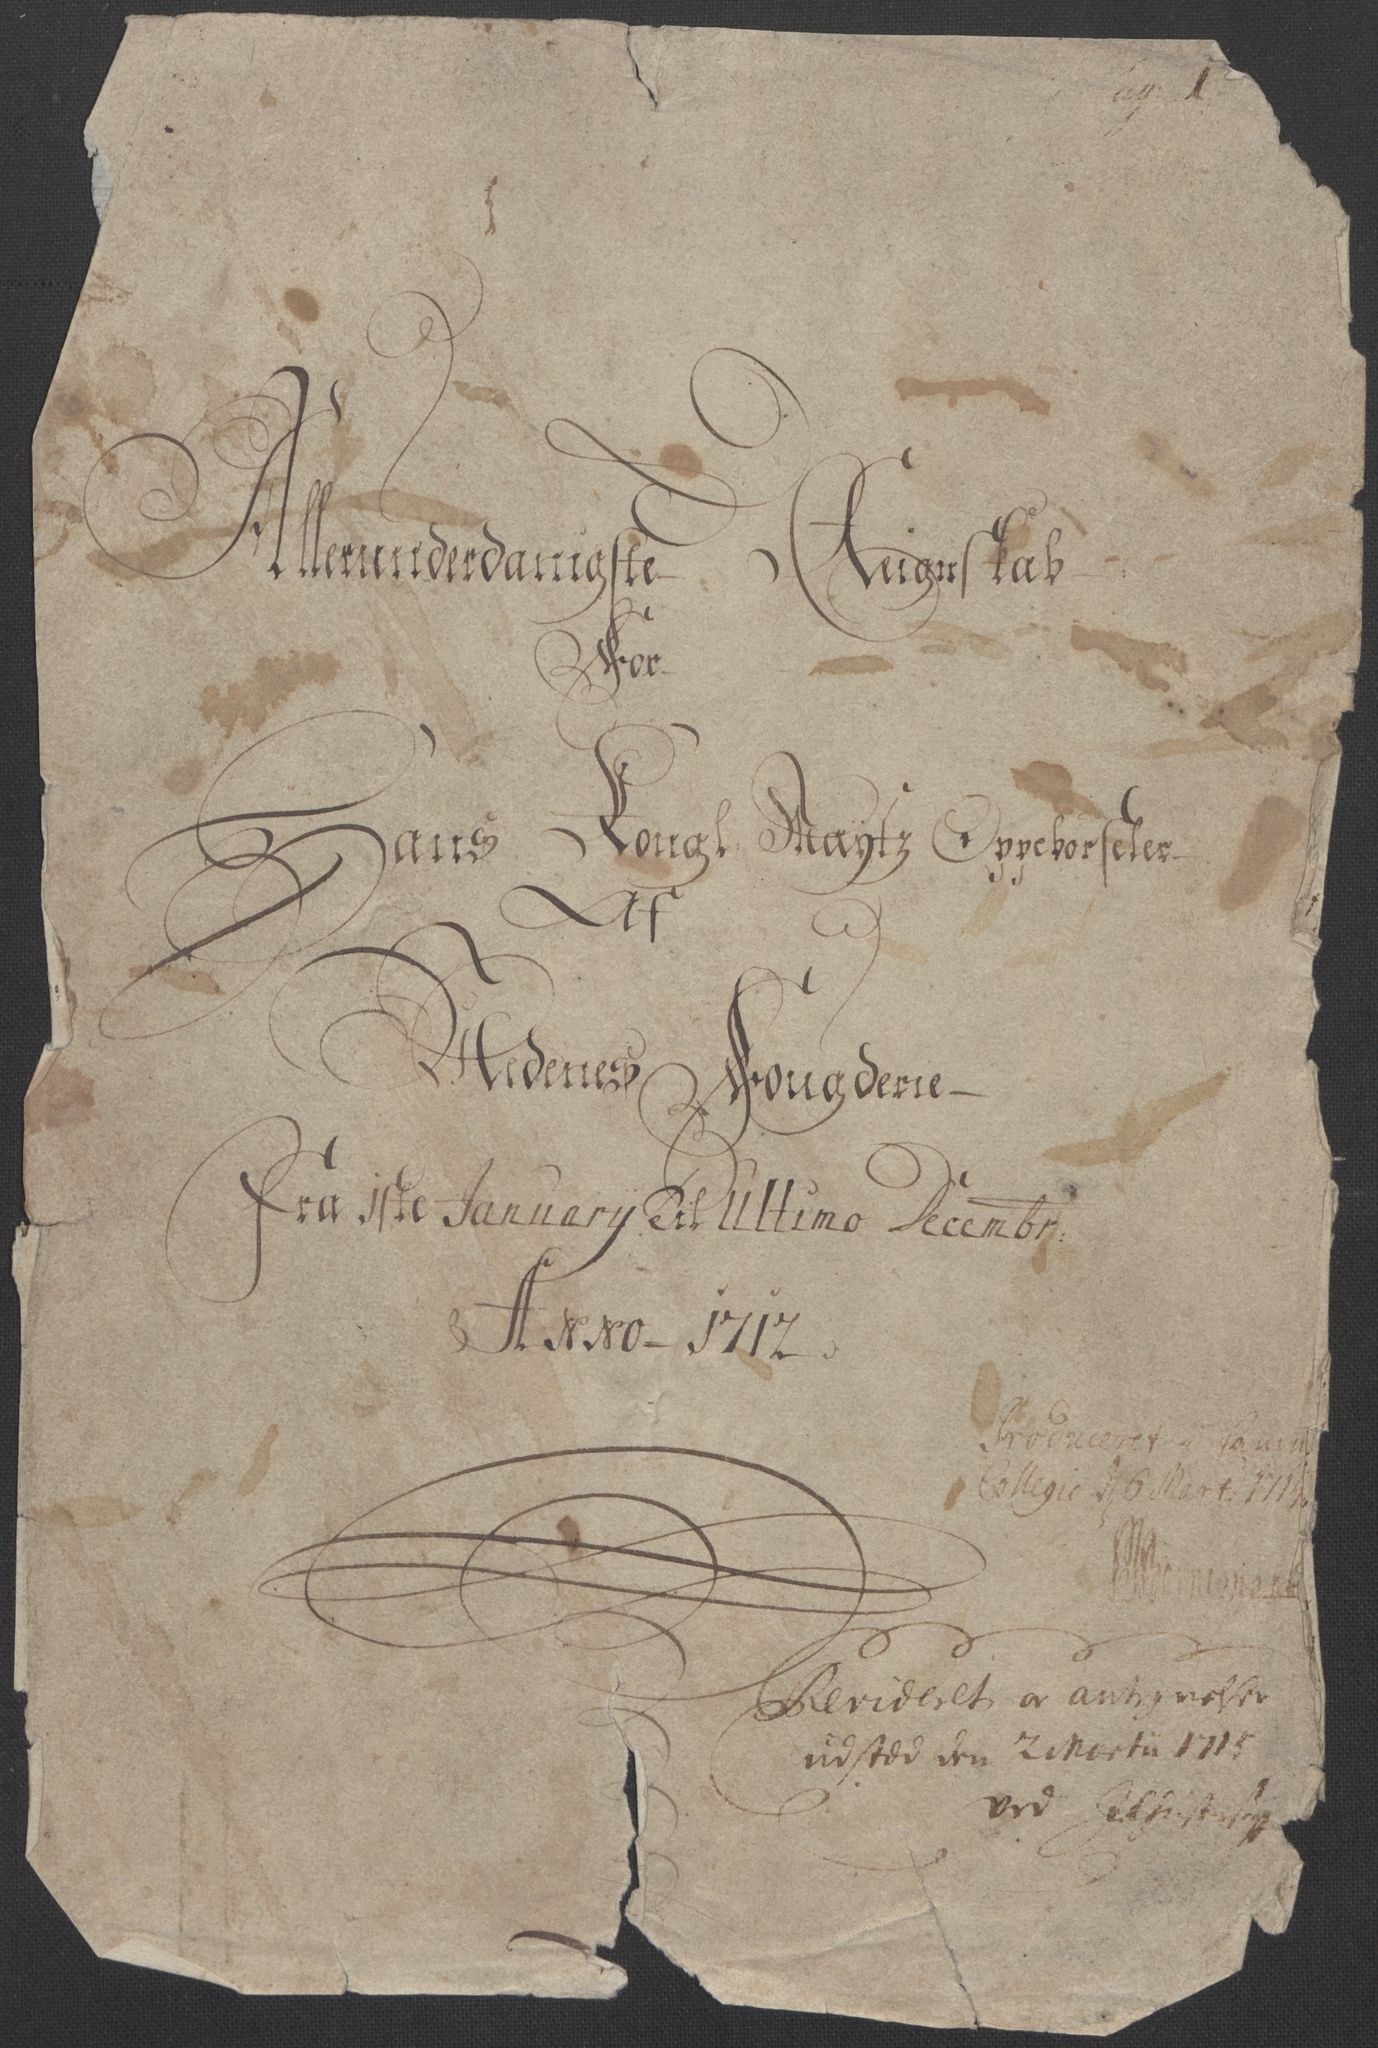 Allerunderdanigste Reignskab
For
Hans Kongl Maytz Oppebørseler
Af
Nedenes Fougderie
Fra 1ste January Til Ultimo Decembr:
Anno 1712
Produceret i
Collegio d 6 Marti 1715
Revideret
udstæd den 2 Martii 1715
ved